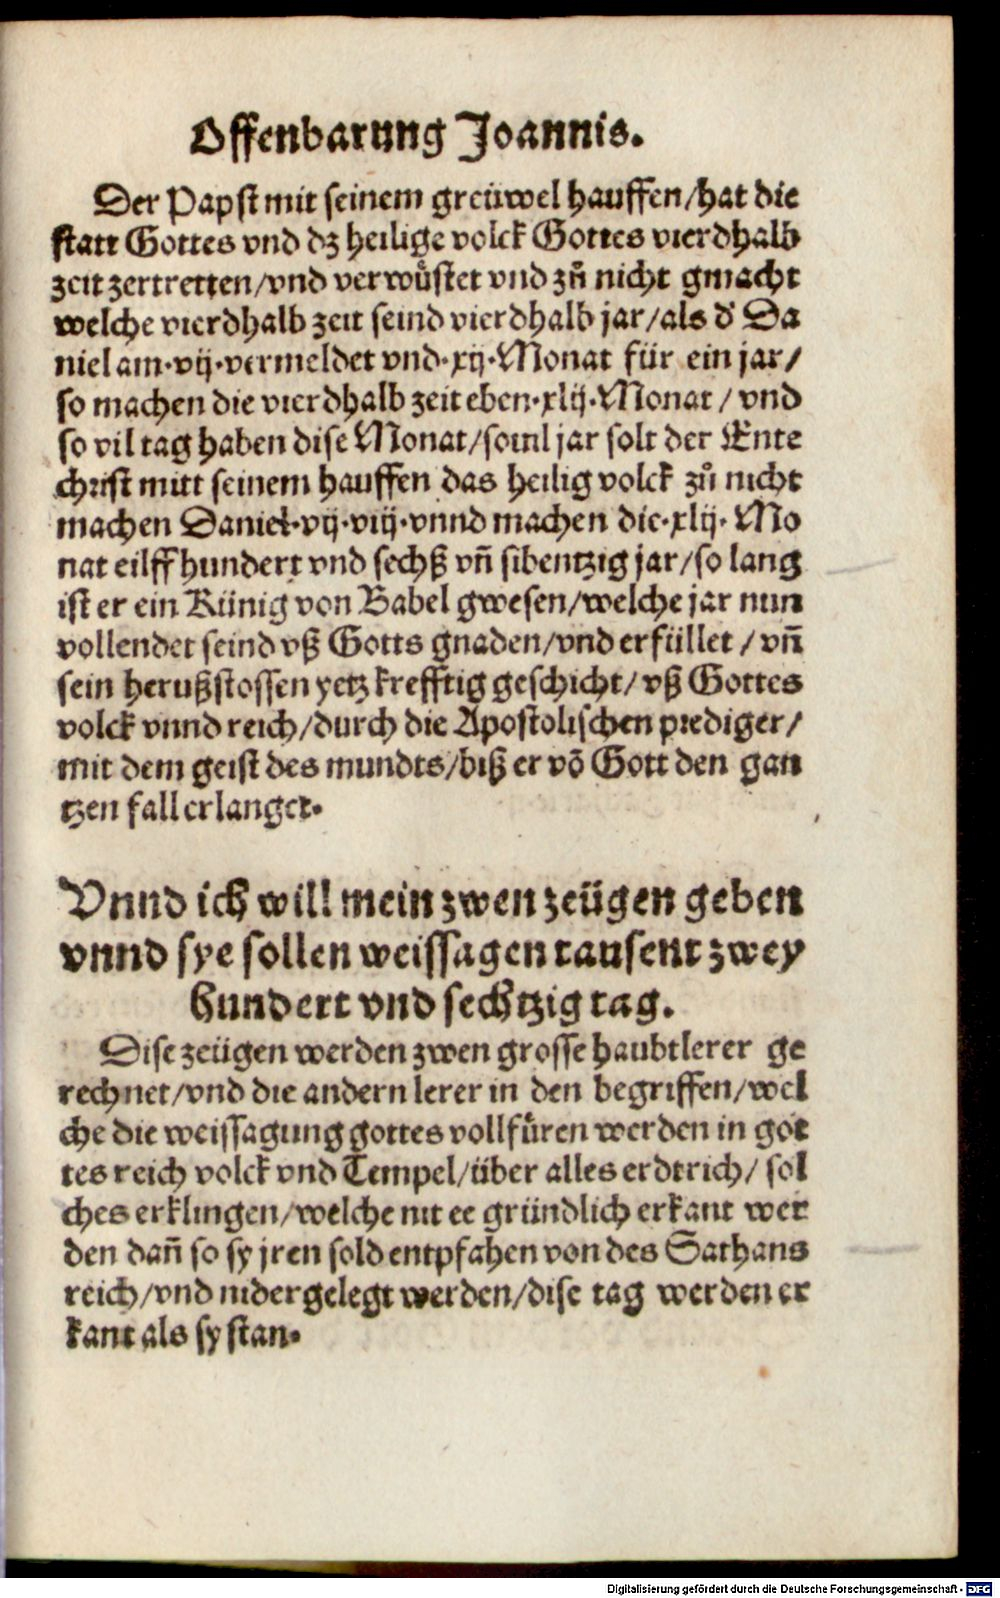 Offenbarung Joannis.
Der Papst mit seinem greüwel hauffen/hat die
statt Gottes vnd dz heilige volck Gottes vierdhalb
zeit zertretten/vnd verwůstet vnd zů nicht gmacht
welche vierdhalb zeit seind vierdhalb jar/als d' Da
niel am·vij·vermeldet vnd·xij·Monat für ein jar/
so machen die vierdhalb zeit eben·xlij·Monat/vnd
so vil tag haben dise Monat/souil jar solt der Ente
christ mitt seinem hauffen das heilig volck zů nicht
machen Daniel·vij·viij·vnnd machen die·xlij·Mo
nat eilffhundert vnd sechß vn̄ sibentzig jar/so lang
ist er ein Künig von Babel gwesen/welche jar nun
vollendet seind vß Gotts gnaden/vnd erfüllet/vn̄
sein herußstossen yetz krefftig geschicht/vß Gottes
volck vnnd reich/durch die Apostolischen prediger/
mit dem geist des mundts/biß er vō Gott den gan
tzen fall erlanget.
Vnnd ich will mein zwen zeügen geben
vnnd sye sollen weissagen tausent zwey
hundert vnd sechtzig tag.
Dise zeügen werden zwen grosse haubtlerer ge
rechnet/vnd die andern lerer in den begriffen/wel
che die weissagung gottes vollfüren werden in got
tes reich volck vnd Tempel/über alles erdtrich/sol
ches erklingen/welche nit ee gründlich erkant wer
den dan̄ so sy jren sold entpfahen von des Sathans
reich/vnd nidergelegt werden/dise tag werden er
kant als sy stan.
Digitalisierung gefördert durch die Deutsche Forschungsgemeinschaft - DFG